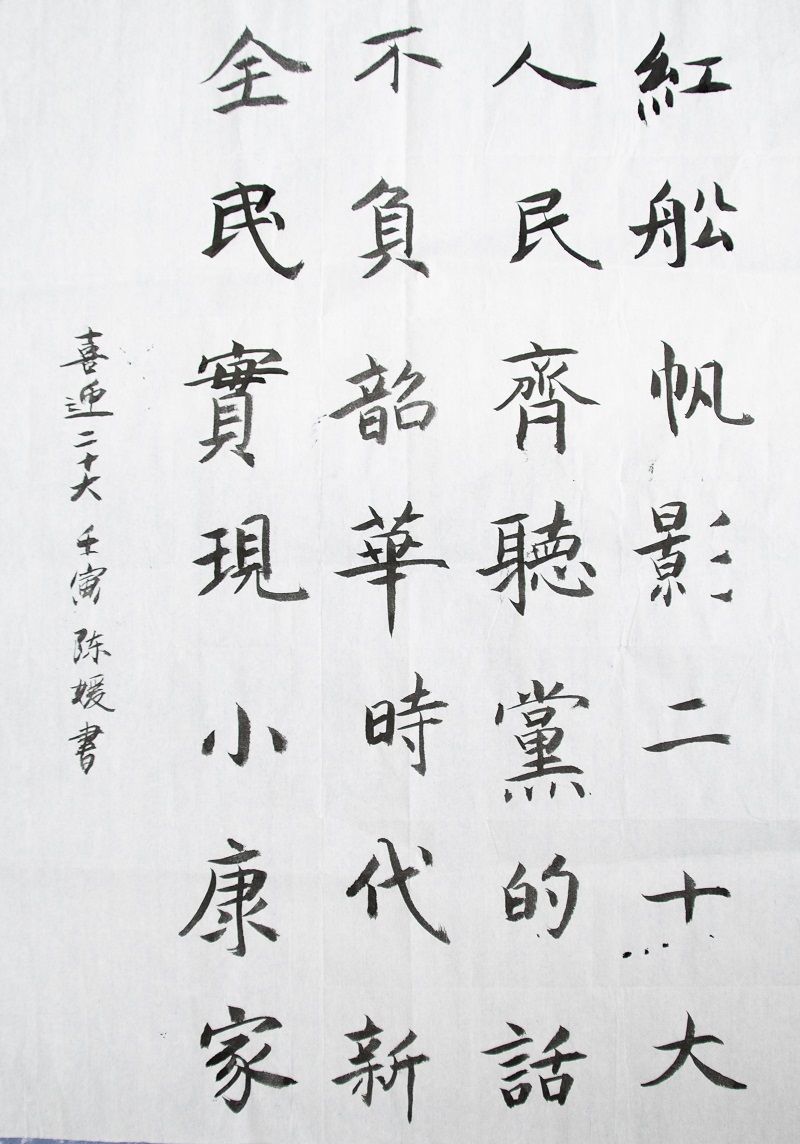 紅船帆影二十大
人民齊聽黨的話
不負韶華時代新
全民實現小康家
喜迎二十大 壬寅 陈媛書